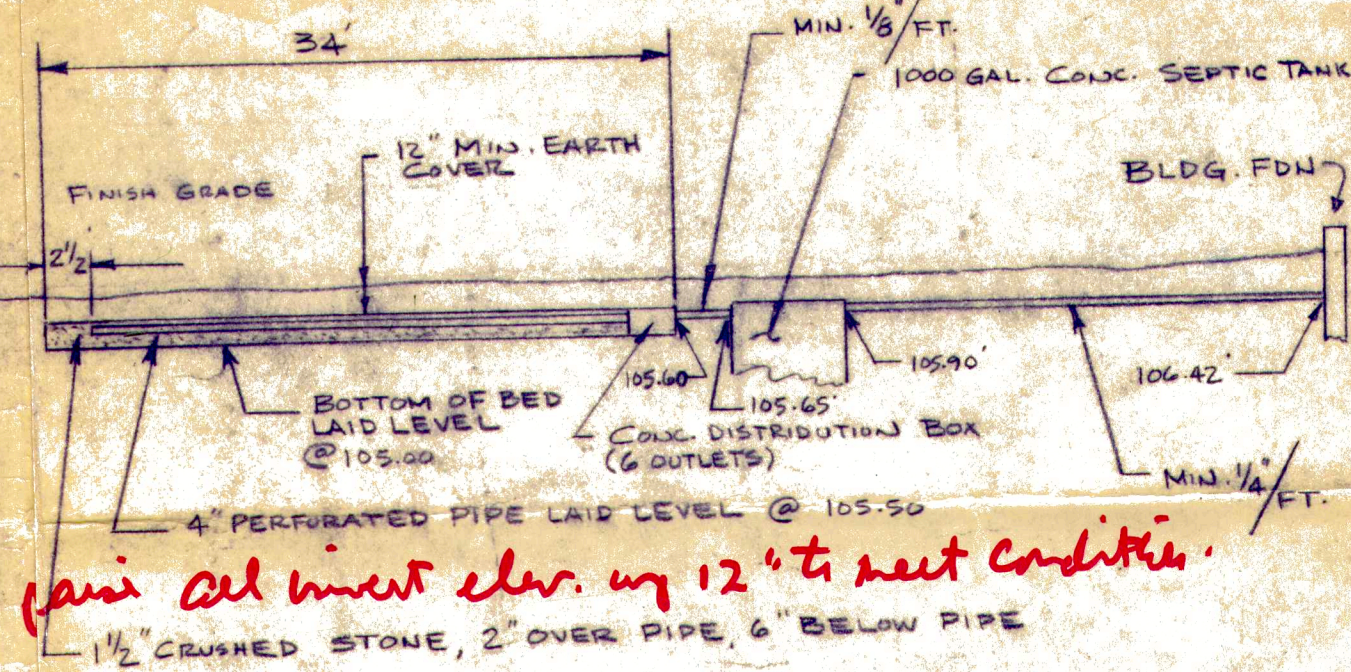 34'
MIN. 1/8"/FT.
1000 GAL. CONC. SEPTIC TANK
12" MIN. EARTH
COVER
BLDG. FDN
FINISH GRADE
2 1/2'
105.60
105.90'
106.42'
105.65'
BOTTOM OF BED
LAID LEVEL
@ 105.00
CONC. DISTRIBUTION BOX
(6 OUTLETS)
MIN. 1/4"/FT.
4" PERFORATED PIPE LAID LEVEL @ 105.50
raise all invert elev. by 12" to meet condition.
1 1/2" CRUSHED STONE, 2" OVER PIPE, 6" BELOW PIPE